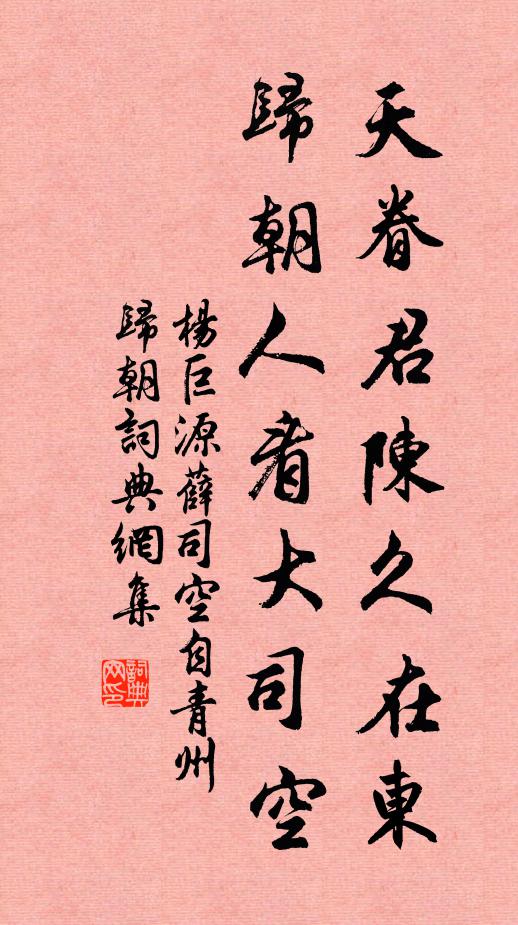 天眷君陳久在東
歸朝人看大司空
楊巨源薛司空自青州
歸朝詞典網集
詞典
网印